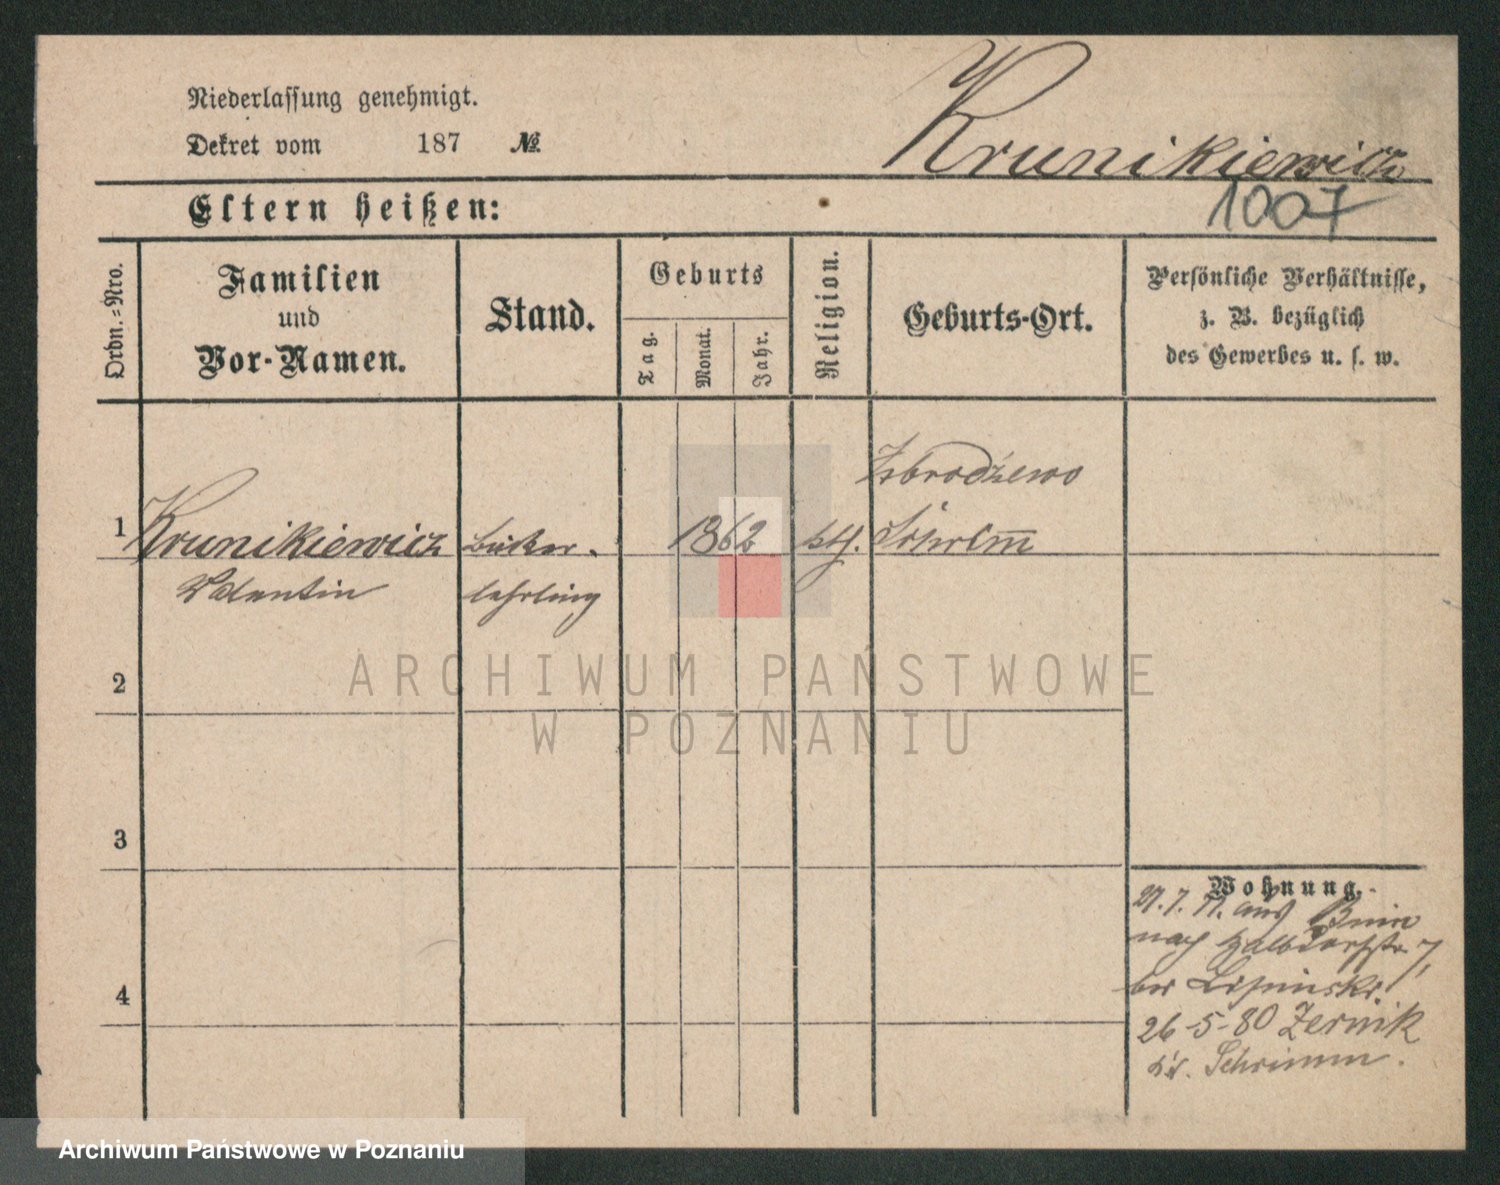 Niederlassung genehmigt.
Dekret vom 187 №
Krunikiewicz
1007
Eltern heißen:
Ordn.-Nro.
Familien
und
Vor-Namen.
Stand.
Geburts
Tag.
Monat.
Jahr.
Religion.
Geburts-Ort.
Persönliche Verhältnisse,
z. B. bezüglich
des Gewerbes u. s. w.
Zbrodżewo
1 Krunikiewicz Bäcker- 1862 kth. Schrim̅
Valentin lehrling
2
ARCHIWUM PAŃSTWOWE
W POZNANIU
3
4
Wohnung.
aus Bnin
nach Halbdorfstr. 7,
bei Lipinski.
26-5-80 Zernik
Kr. Schrimm.
Archiwum Państwowe w Poznaniu